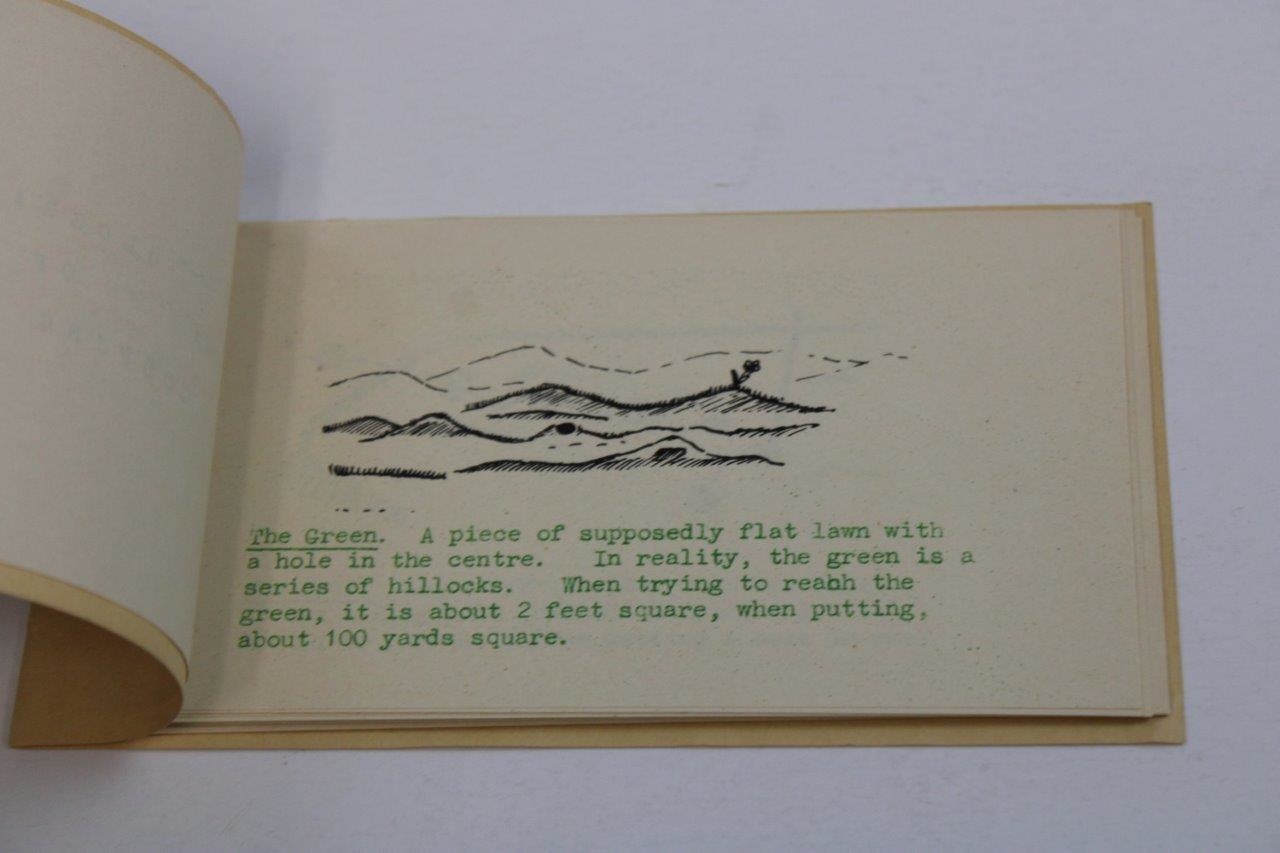 The Green.  A piece of supposedly flat lawn with
a hole in the centre.   In reality, the green is a
series of hillocks.   When trying to reahh the
green, it is about 2 feet square, when putting,
about 100 yards square.